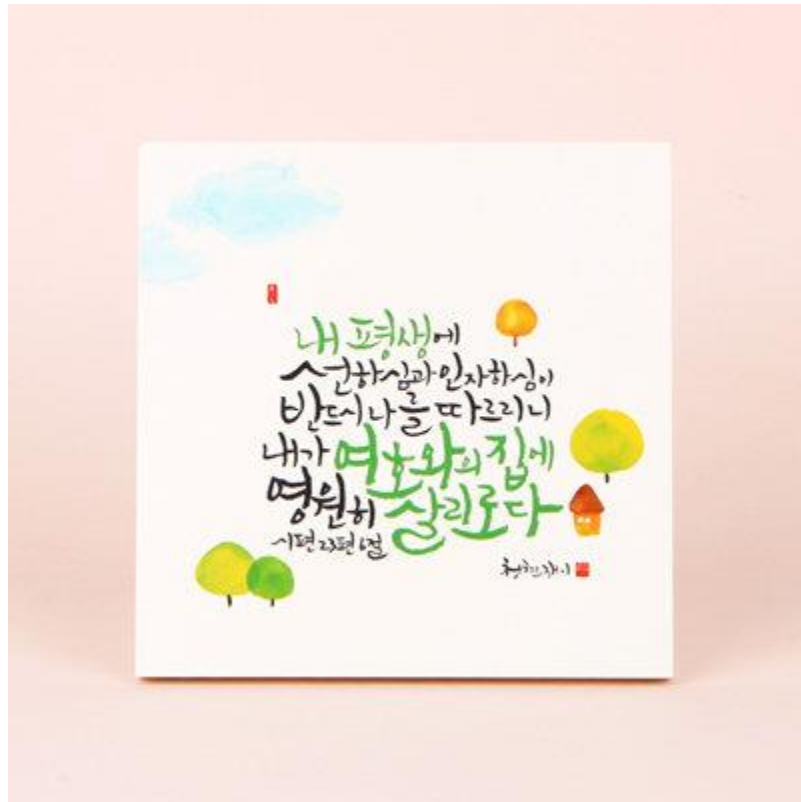 내 평생에
선하심과 인자하심이
반드시 나를 따르리니
내가 여호와의 집에
영원히 살리로다
시편 23편 6절
청현재이